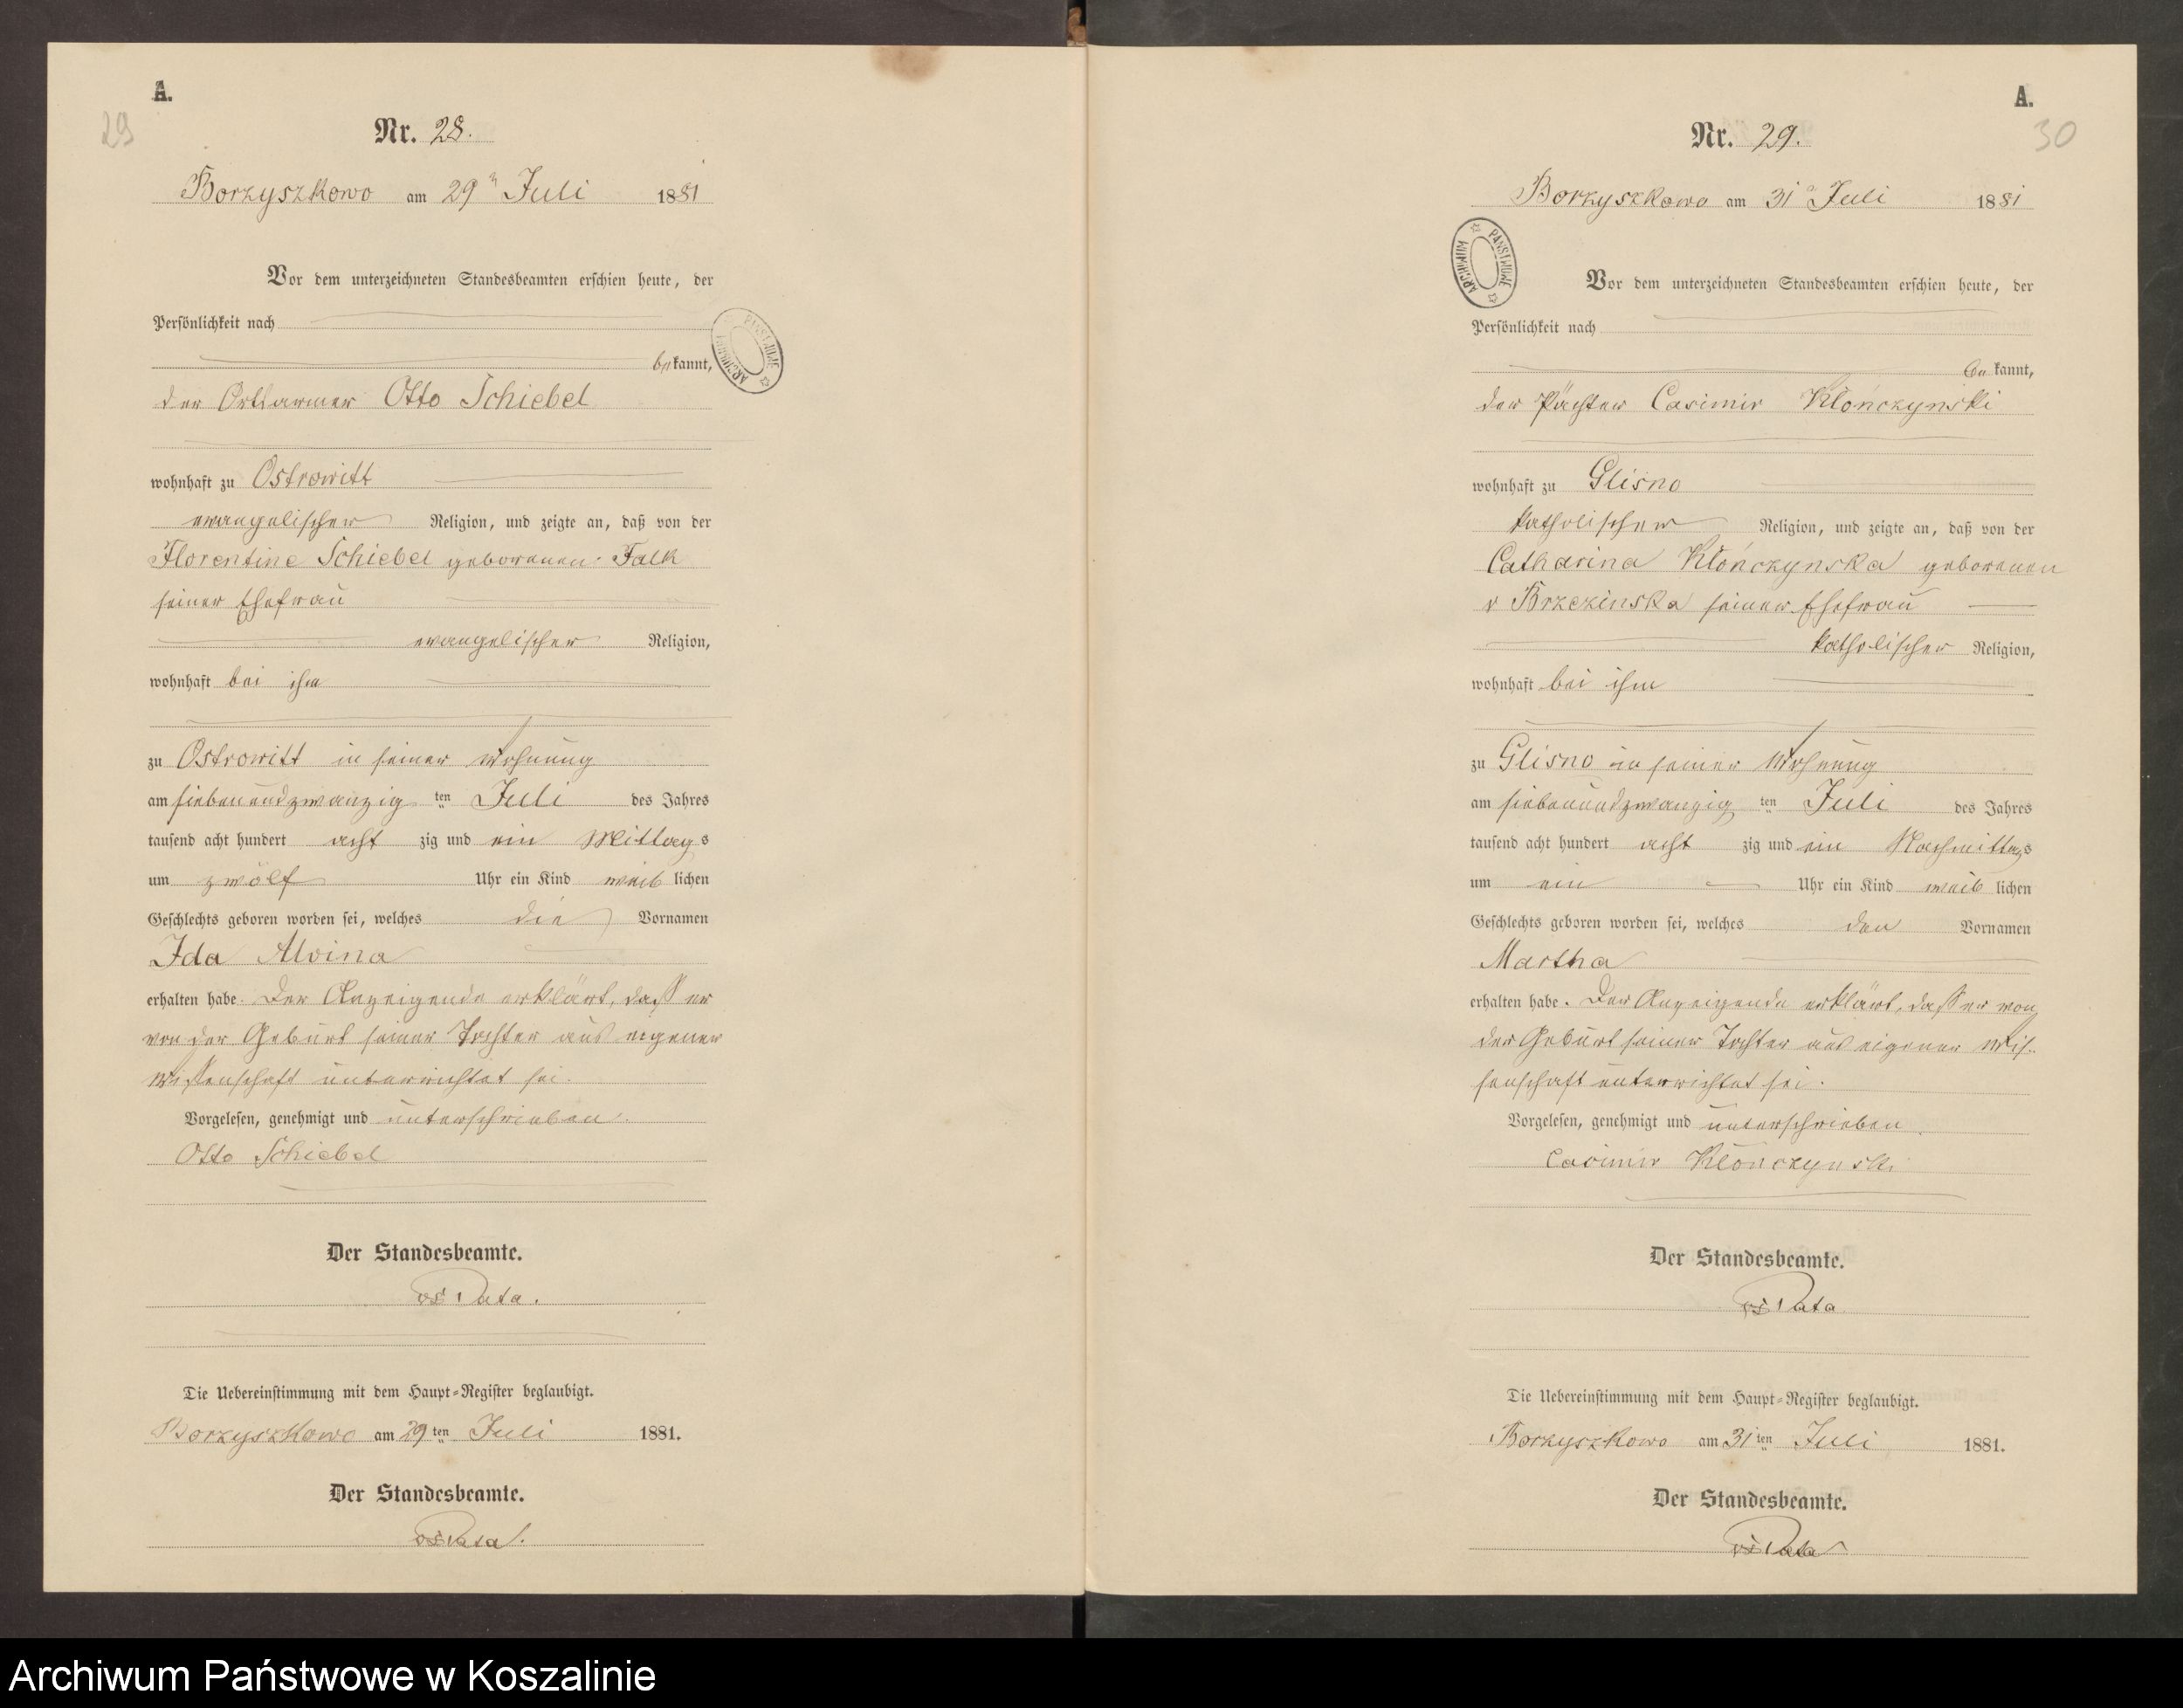 A.
29
Nr. 28.
Borzyszkowo am 29 Juli 1881
Vor dem unterzeichneten Standesbeamten erschien heute, der
Persönlichkeit nach
bekannt,
der Ortsarmer Otto Schiebel
wohnhaft zu Ostrowitt
evangelischer Religion, und zeigte an, daß von der
Florentine Schiebel geborenen Falk
seiner Ehefrau
evangelischer Religion,
wohnhaft bei ihm
zu Ostrowitt in seiner Wohnung
am siebenundzwanzig ten Juli des Jahres
tausend acht hundert acht zig und ein Mittags
um zwölf Uhr ein Kind weiblichen
Geschlechts geboren worden sei, welches die Vornamen
Ida Alvina
erhalten habe. Der Anzeigende erklärt, daß er
von der Geburt seiner Tochter aus eigener
Wissenschaft unterrichtet sei.
Vorgelesen, genehmigt und unterschrieben.
Otto Schiebel
Der Standesbeamte.
Die Uebereinstimmung mit dem Haupt-Register beglaubigt.
Borzyszkowo am 29 ten Juli 1881.
Der Standesbeamte.
ARCHIWUM PAŃSTWOWE
A.
30
Nr. 29.
Borzyszkowo am 31 Juli 1881
Vor dem unterzeichneten Standesbeamten erschien heute, der
Persönlichkeit nach
bekannt,
der Pächter Casimir Kłończynski
wohnhaft zu Glisno
katholischer Religion, und zeigte an, daß von der
Catharina Kłończynska geborenen
v Brzezinska seiner Ehefrau
katholischer Religion,
wohnhaft bei ihm
zu Glisno in seiner Wohnung
am siebenundzwanzig ten Juli des Jahres
tausend acht hundert acht zig und ein Nachmittags
um ein Uhr ein Kind weiblichen
Geschlechts geboren worden sei, welches den Vornamen
Martha
erhalten habe. Der Anzeigende erklärt, daß er von
der Geburt seiner Tochter aus eigener Wis-
senschaft unterrichtet sei.
Vorgelesen, genehmigt und unterschrieben.
Casimir Kłończynski
Der Standesbeamte.
Die Uebereinstimmung mit dem Haupt-Register beglaubigt.
Borzyszkowo am 31 ten Juli 1881.
Der Standesbeamte.
ARCHIWUM PAŃSTWOWE
Archiwum Państwowe w Koszalinie